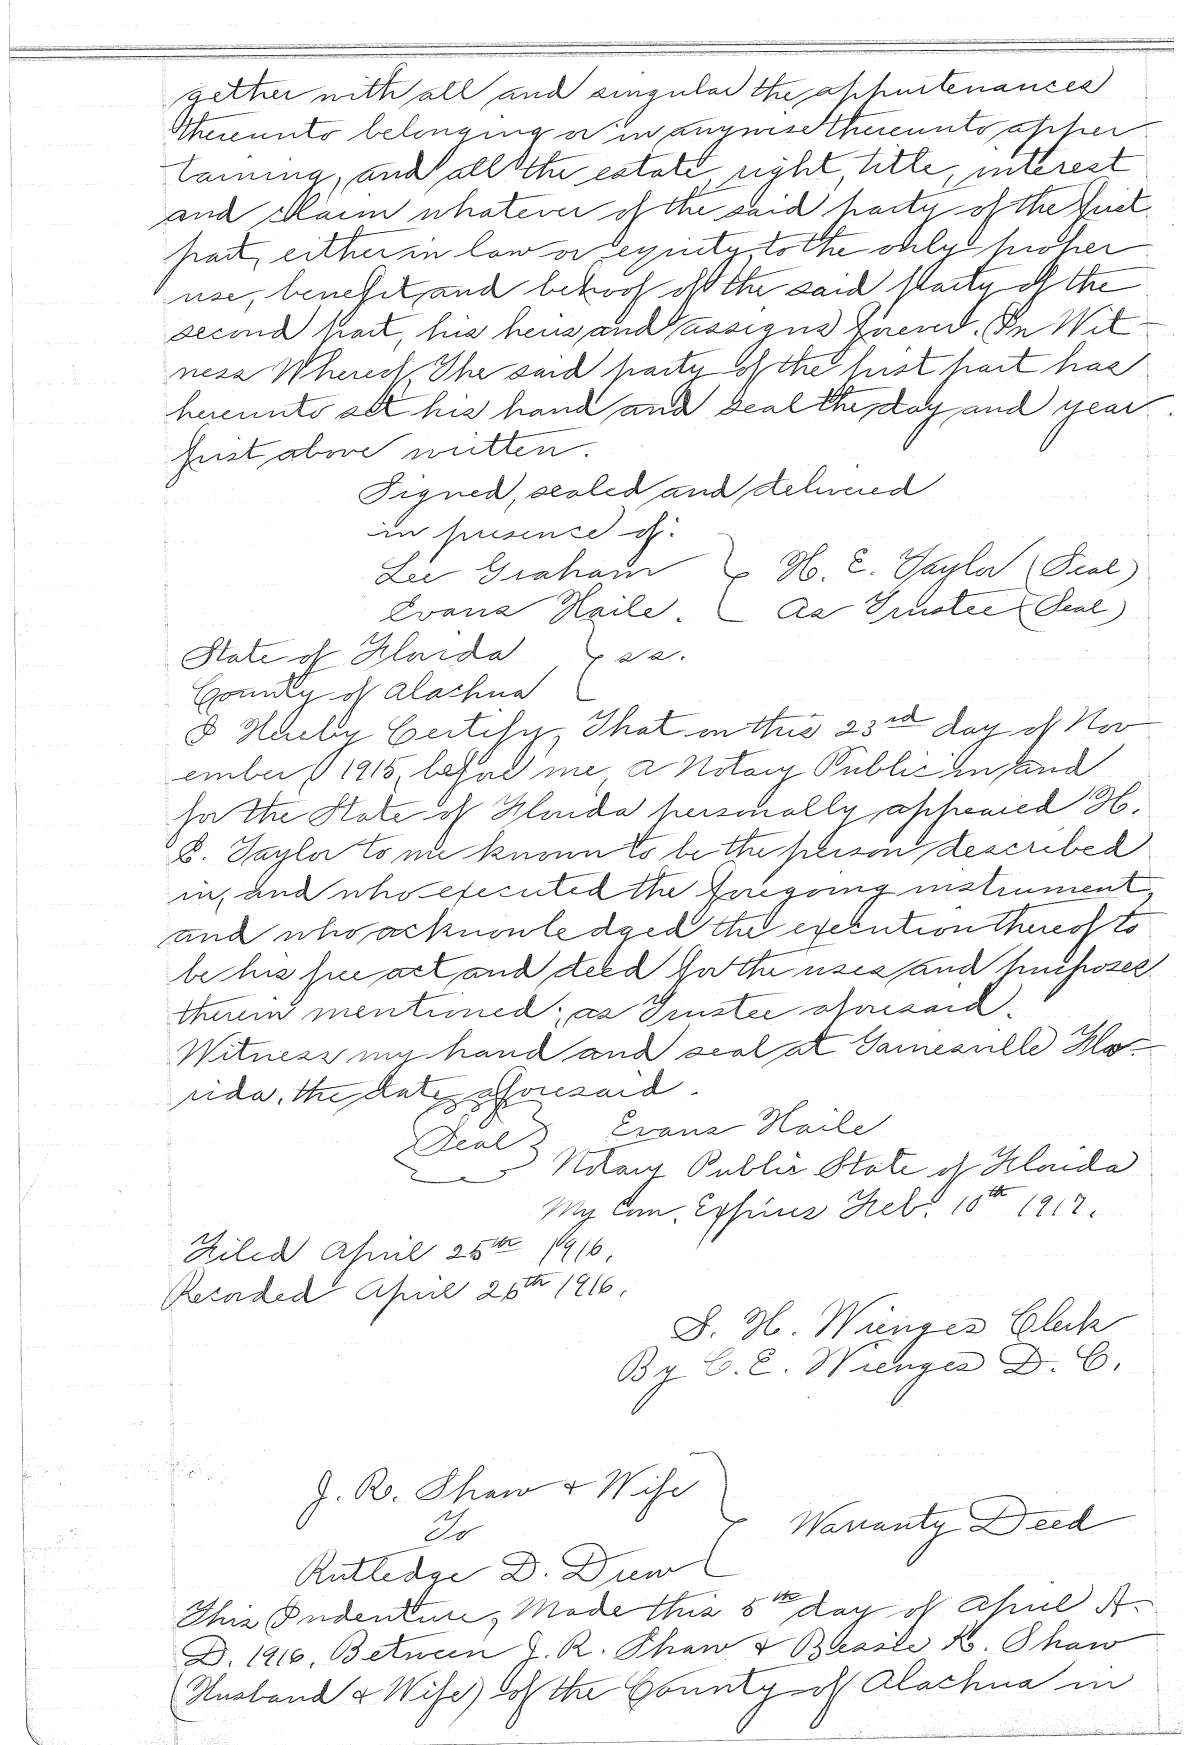 gether with all and singular the appurtenances
thereunto belonging or in anywise thereunto apper
taining, and all the estate, right, title, interest
and claim whatever of the said party of the first
part, either in law or equity, to the only proper
use, benefit, and behoof of the said party of the
second part, his heirs and assigns forever. In Wit-
ness Whereof, The said party of the first part has
hereunto set his hand and seal the day and year
first above written.
Signed, sealed and delivered
in presence of:
Lee Graham } H. E. Taylor (Seal)
Evans Haile. } As Trustee (Seal)
State of Florida } ss.
County of Alachua }
I Hereby Certify, That on this 23rd day of Nov
ember, 1915, before me, a Notary Public in and
for the State of Florida personally appeared H.
E. Taylor to me known to be the person described
in, and who executed the foregoing instrument,
and who acknowledged the execution thereof to
be his free act and deed for the uses and purposes
therein mentioned; as Trustee aforesaid.
Witness my hand and seal at Gainesville Flo-
rida, the date aforesaid.
(Seal) Evans Haile
Notary Public State of Florida
My Com. Expires Feb. 10th 1917.
Filed April 25th 1916.
Recorded April 26th 1916.
S. H. Wienges Clerk
By C. E. Wienges D. C.
J. R. Shaw & Wife
To } Warranty Deed
Rutledge D. Drew
This Indenture, Made this 5th day of April A.
D. 1916, Between J. R. Shaw & Bessie K. Shaw
(Husband & Wife) of the County of Alachua in